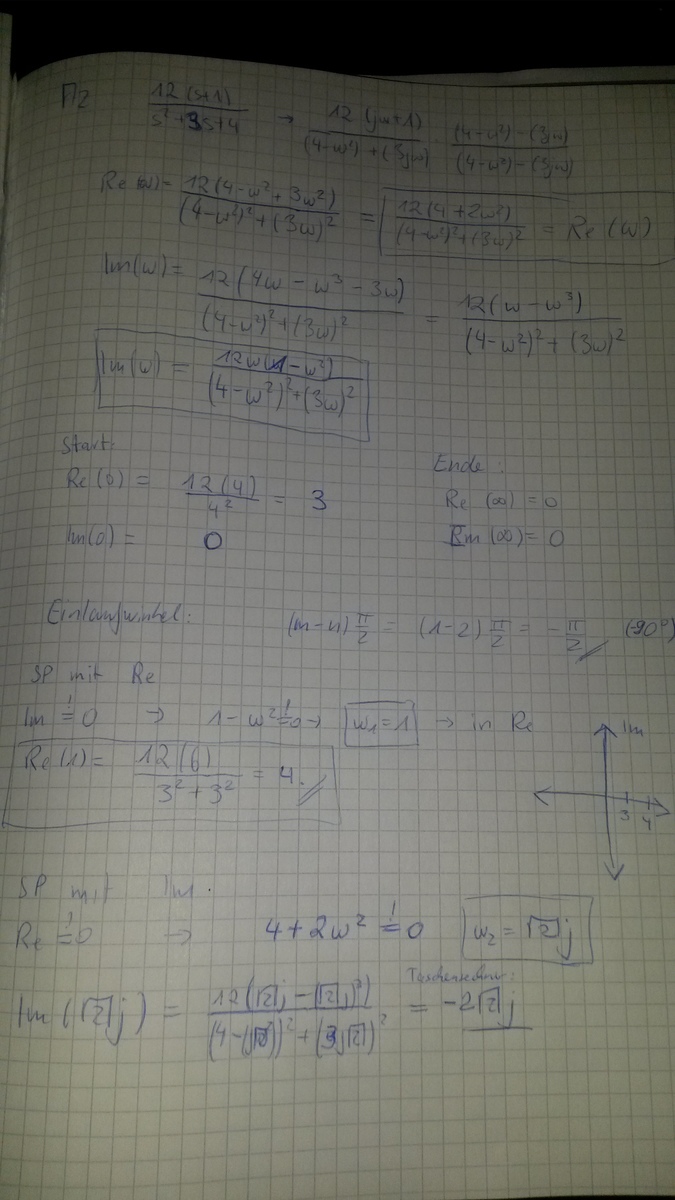 12(s+1) / (s² + 3s + 4) → 12(jω+1) / ((4-ω²) + (3jω)) · ((4-ω²) - (3jω)) / ((4-ω²) - (3jω))
Re(ω) = 12(4-ω² + 3ω²) / ((4-ω²)² + (3ω)²) = 12(4 + 2ω²) / ((4-ω²)² + (3ω)²) = Re(ω)
Im(ω) = 12(4ω - ω³ - 3ω) / ((4-ω²)² + (3ω)²) = 12(ω - ω³) / ((4-ω²)² + (3ω)²)
Im(ω) = 12ω(1 - ω²) / ((4-ω²)² + (3ω)²)
Start:
Ende:
Re(0) = 12(4) / 4² = 3
Re(∞) = 0
Im(0) = 0
Im(∞) = 0
Einlaufwinkel: (m-n) π/2 = (1-2) π/2 = -π/2 (-90°)
SP mit Re
Im ≟ 0 → 1 - ω² ≟ 0 → ω₁ = 1 → in Re
Re(1) = 12(6) / (3² + 3²) = 4
Im
3 4
SP mit Im.
Re ≟ 0 → 4 + 2ω² ≟ 0 ω₂ = √2 j
Taschenrechner:
Im(√2 j) = 12(√2 j - (√2 j)³) / ((4-(j√2)²)² + (3j√2)²) = -2√2 j